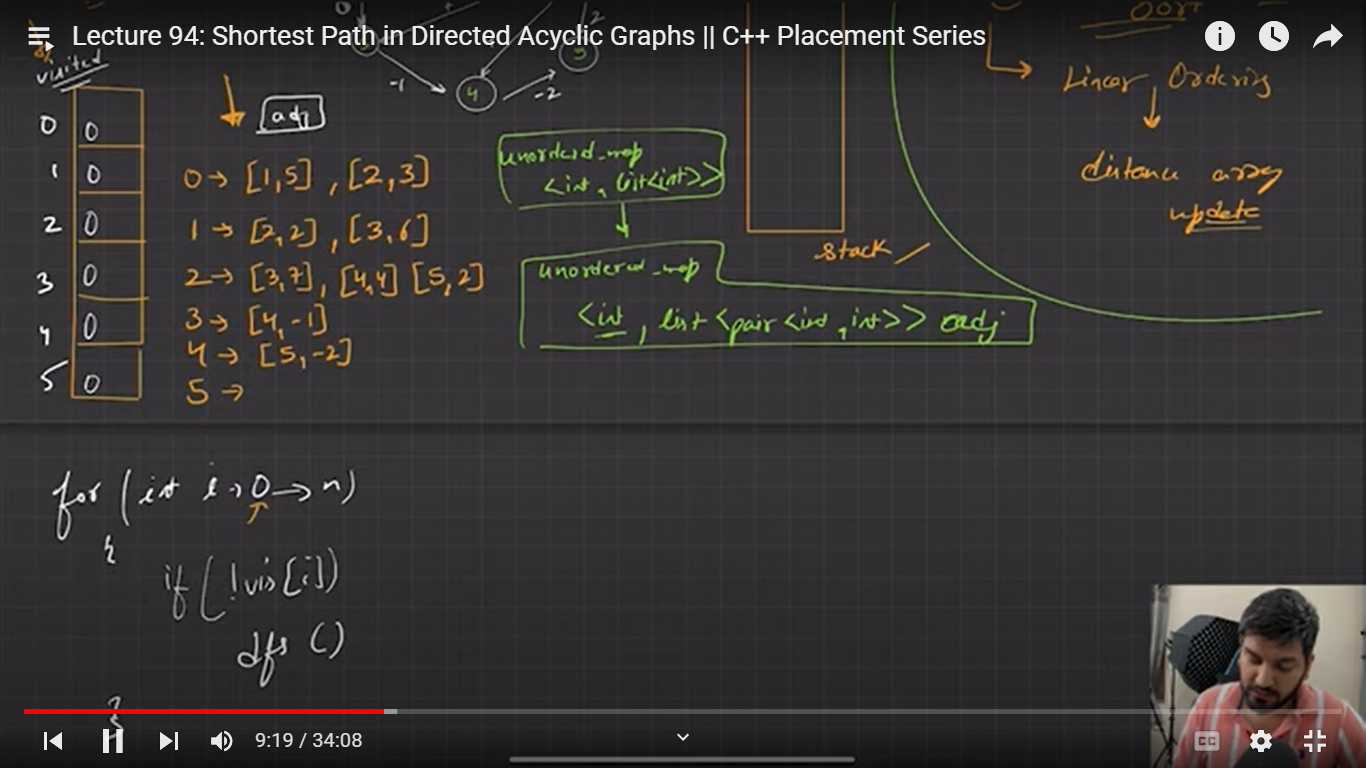 Lecture 94: Shortest Path in Directed Acyclic Graphs || C++ Placement Series
visited
0 0
1 0
2 0
3 0
4 0
5 0
adj
0 → [1,5] , [2,3]
1 → [2,2] , [3,6]
2 → [3,7] , [4,4] [5,2]
3 → [4,-1]
4 → [5,-2]
5 →
0
-1
4
-2
2
5
unordered_map
<int, list<int>>
unordered_map
<int, list<pair<int,int>>> adj
stack
Linear Ordering
distance array
update
for (int i → 0 → n)
{
if (!vis[i])
dfs ()
}
9:19 / 34:08
CC